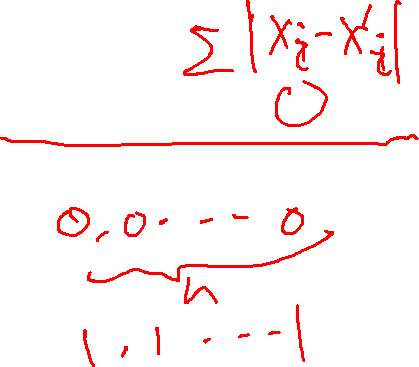 Σ|Xi-X'i|
0
0,0...0,
n
1,1...1